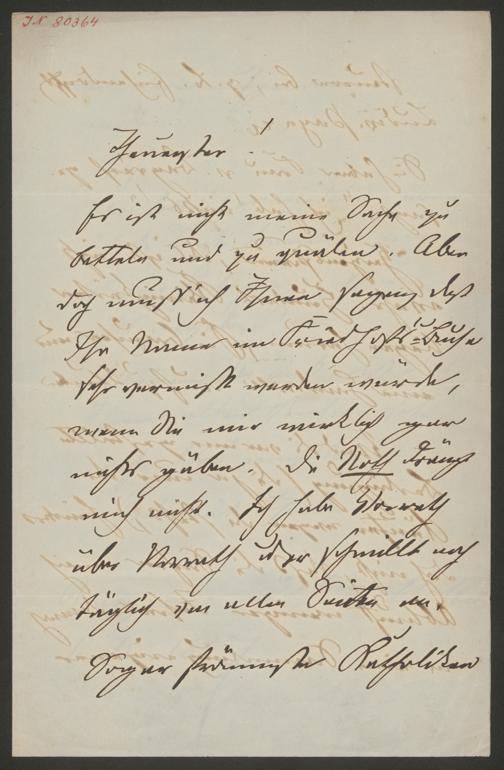 J.N 80364
Theuerster !
Es ist nicht meine Sache zu
betteln und zu quälen. Aber
doch muß ich Ihnen sagen, daß
Ihr Name im Friedhofs-Buche
sehr vermißt werden würde,
wenn Sie mir wirklich gar
nichts gäben. Die Noth drängt
mich nicht. Ich habe Vorrath
über Vorrath u er schwillt noch
täglich von allen Seiten an.
Sogar strengste Katholiken